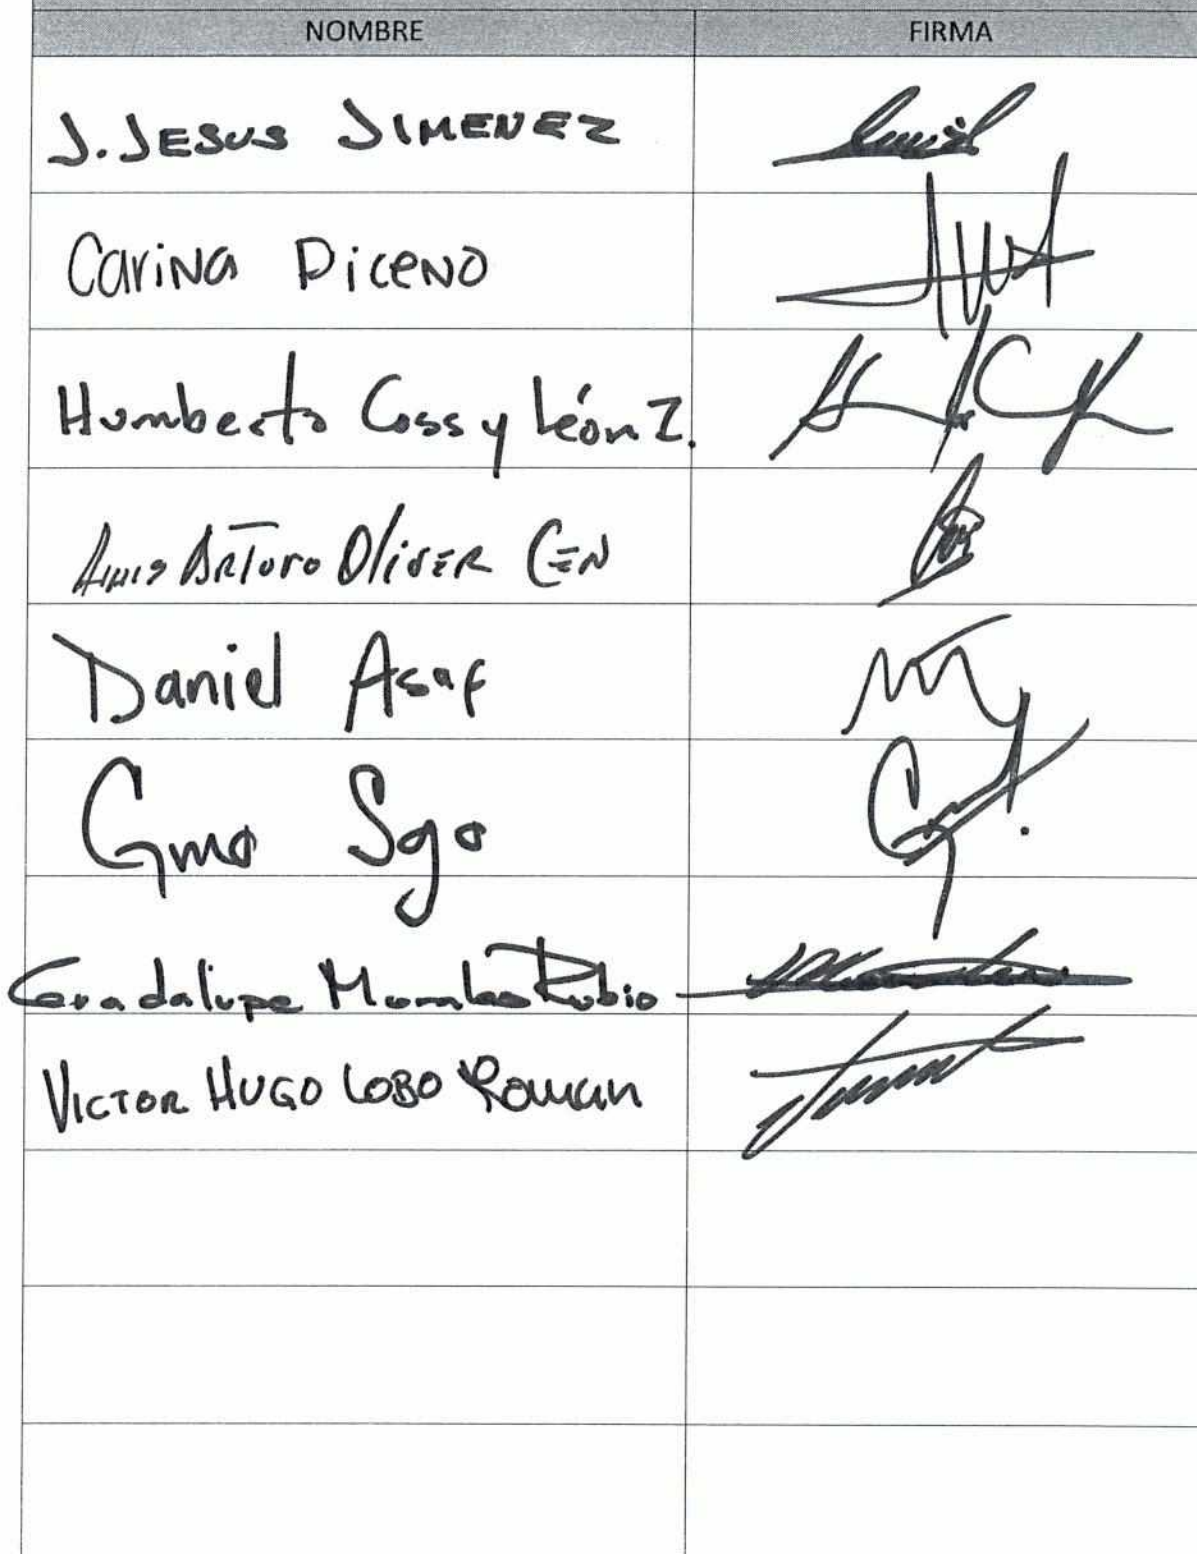 NOMBRE FIRMA
J. JESUS JIMENEZ
Carina Piceno
Humberto Coss y León Z.
Luis Arturo Oliver Cen
Daniel Asaf
Gmo Sgo
Guadalupe Rubio
VICTOR HUGO LOBO Roman